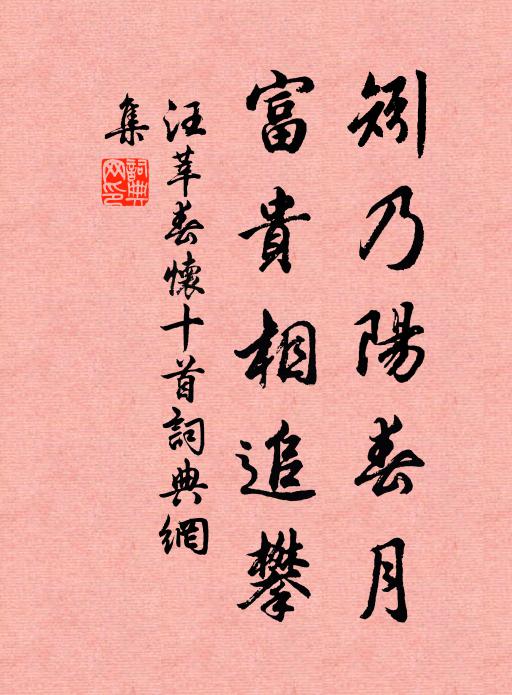 矧乃陽春月
富貴相追攀
汪莘春懷十首詞典網
集
詞典
網印